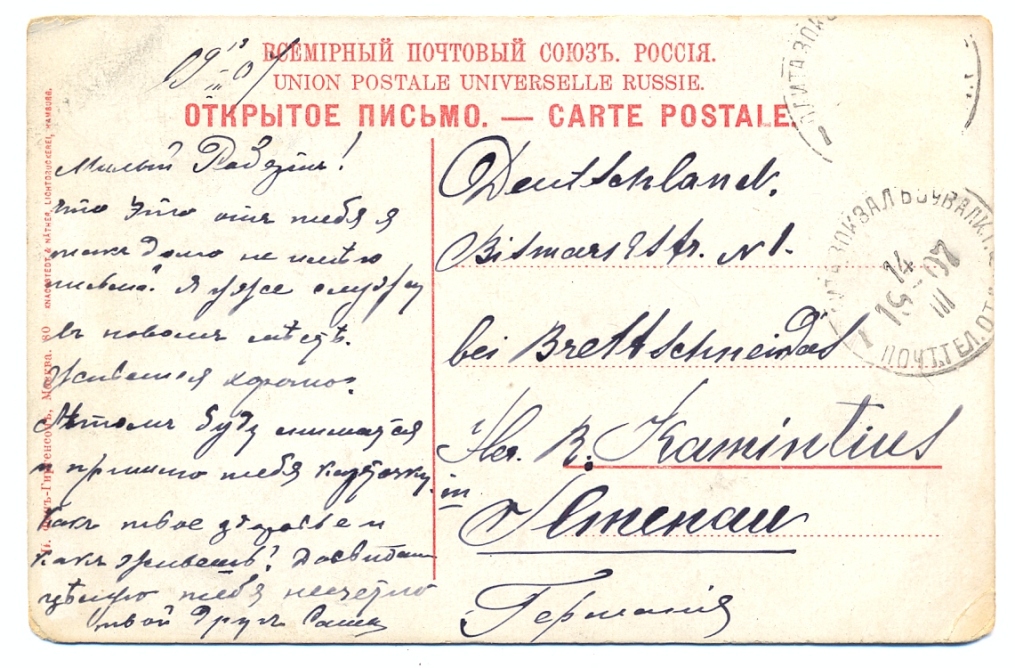 ВСЕМІРНЫЙ ПОЧТОВЫЙ СОЮЗЪ. РОССІЯ.
UNION POSTALE UNIVERSELLE RUSSIE.
ОТКРЫТОЕ ПИСЬМО. — CARTE POSTALE.
Милый
Что это отъ тебя я
такъ долго не имѣю
письма? Я уже служу
въ новомъ мѣстѣ.
Живется хорошо.
Лѣтомъ буду сниматся
и пришлю тебѣ карточку.
Какъ твое здоровье и
какъ живешь? Досвидания
цѣлую тебя несчетно
твой Другъ Саша
Deutschland.
Bismarkstr. N 1.
bei Brettschneiders
Her. R. Kamintius
in
Ilmenau
Германія
ВОКЗАЛЪ СУВАЛК.
14
15 - 07
III
ПОЧТ.ТЕЛ.ОТ.
МОСКВА. 80 KNACKSTEDT & NÄTHER, LICHTDRUCKEREI, HAMBURG.